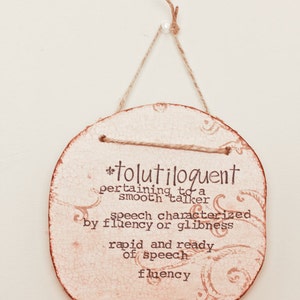 *tolutiloquent
pertaining to a
smooth talker
speech characterized
by fluency or glibness
rapid and ready
of speech
fluency